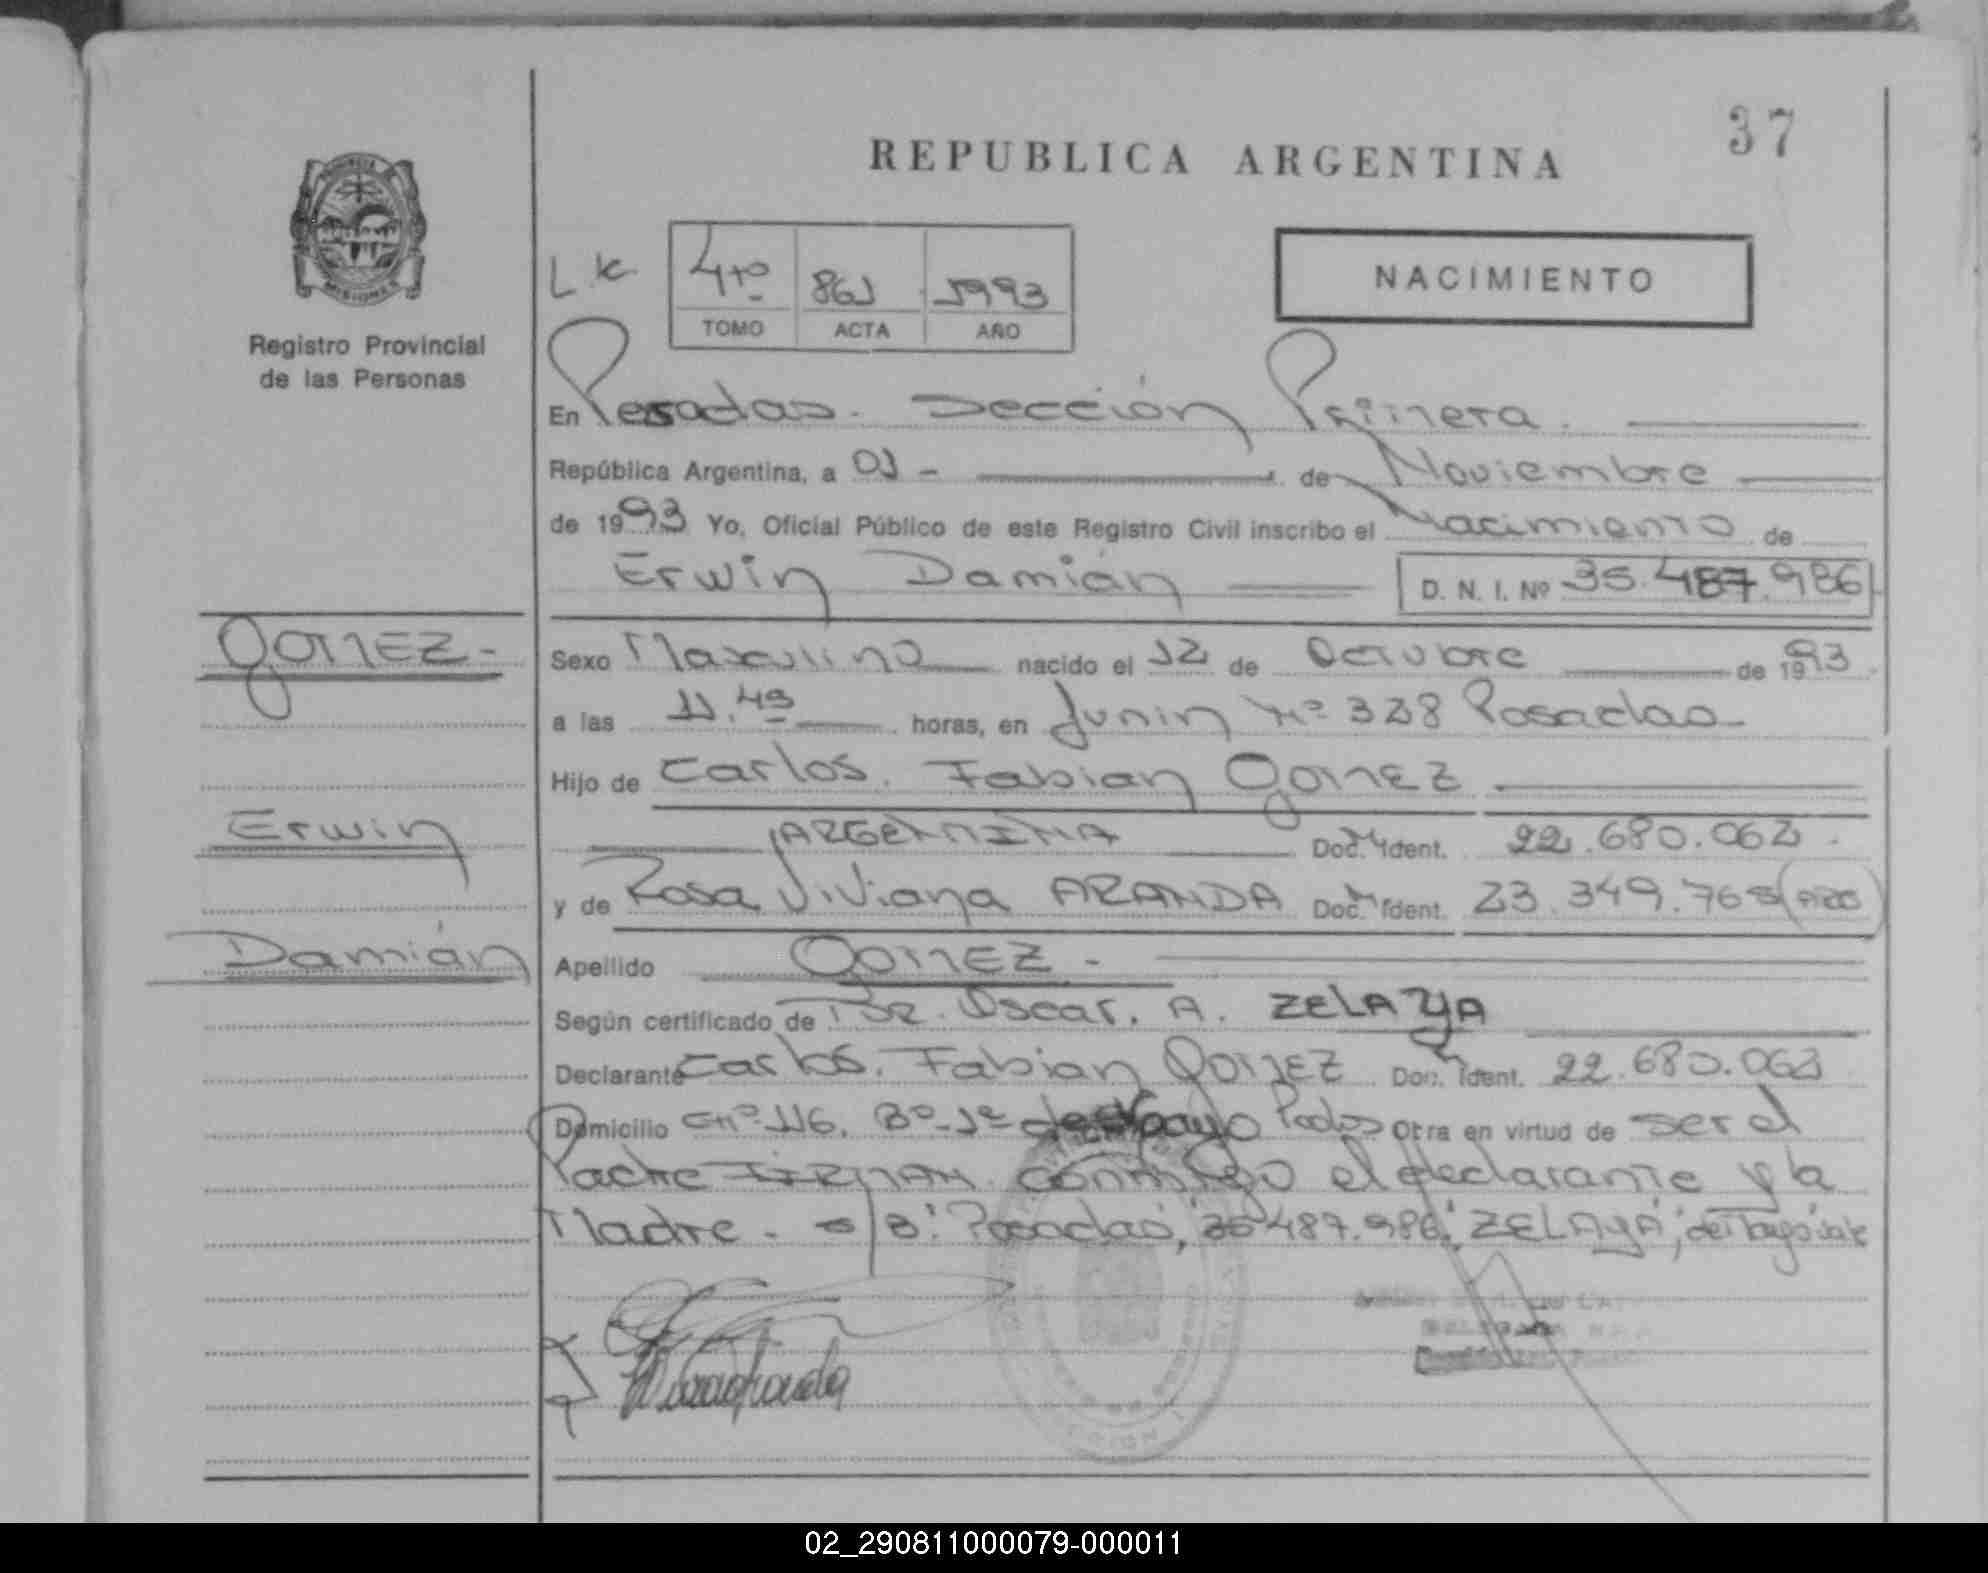 37
REPUBLICA ARGENTINA
PROVINCIA
MISIONES
Registro Provincial
de las Personas
4to 861 1993
TOMO ACTA AÑO
NACIMIENTO
En Posadas. Sección Primera.
República Argentina, a 01 - de Noviembre
de 1993 Yo, Oficial Público de este Registro Civil inscribo el Nacimiento de
Erwin Damián D. N. I. Nº 35.487.986
GOMEZ-
Sexo Masculino nacido el 12 de Octubre de 1993
a las 11.49 horas, en Junin Nº 328 Posadas
Hijo de Carlos. Fabian GOMEZ
Erwin
ARGENTINA Doc. Ident. 22.680.062.
y de Rosa Viviana ARANDA Doc. Ident. 23.349.768
Damián
Apellido GOMEZ-
Según certificado de Dr. Oscar. A. ZELAYA
Declarante Carlos. Fabian GOMEZ Doc. Ident. 22.680.062
Domicilio 116. Bº 1º de Mayo Pdas Otra en virtud de ser el
Padre FIRMAN conmigo el declarante y la
Madre. - s/B: Posadas, 35.487.986, ZELAYA,
02_290811000079-000011